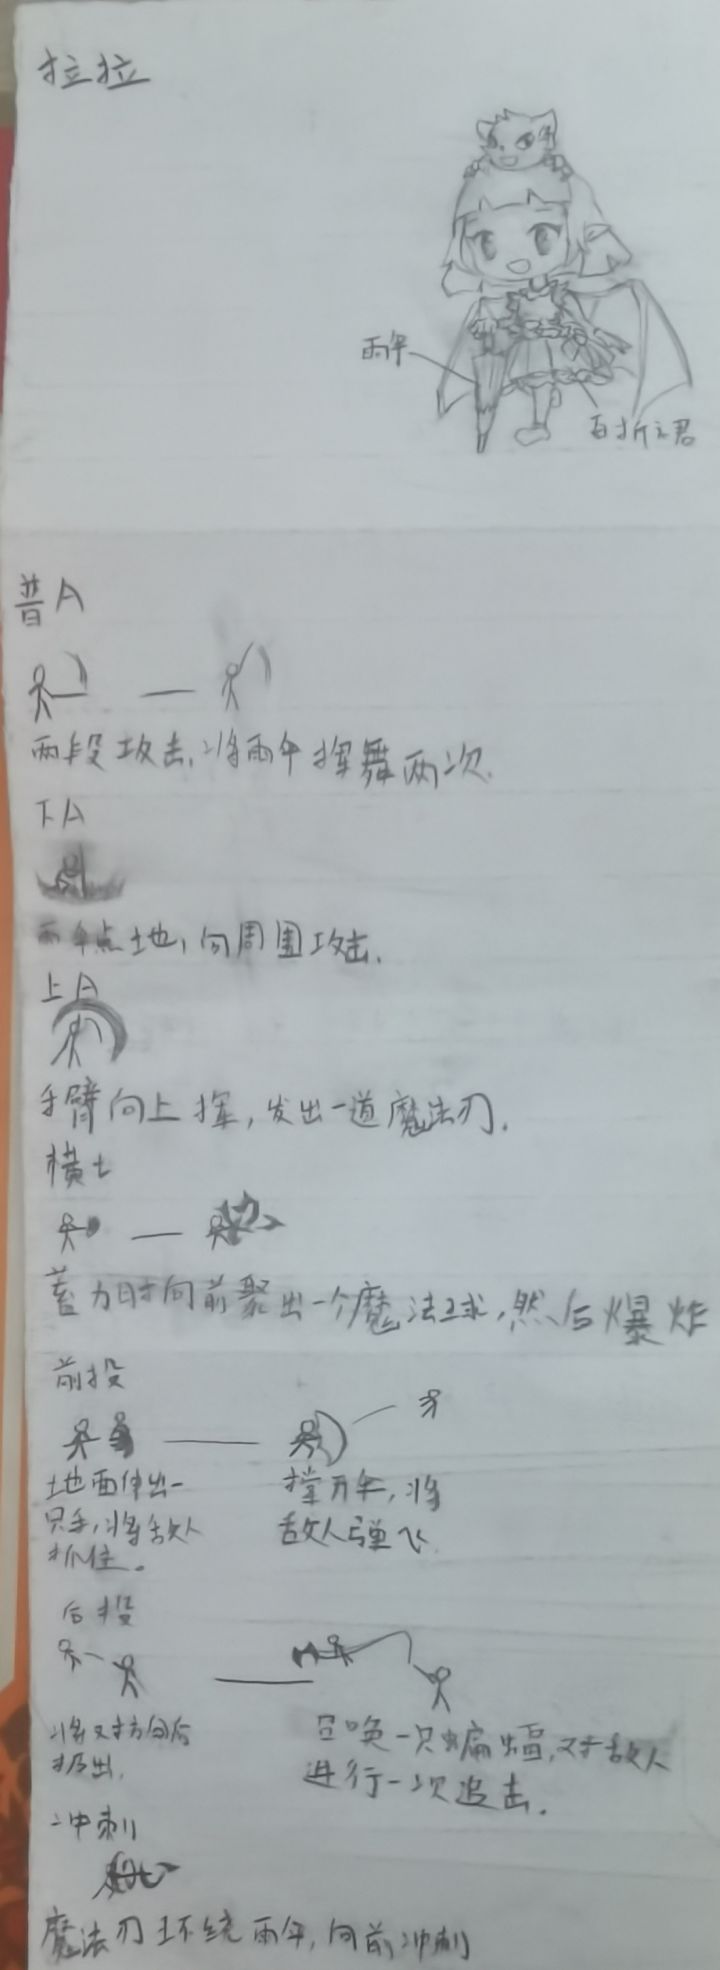 拉拉
雨伞
百折之君
普A
两段攻击,将雨伞挥舞两次.
下A
雨伞点地,向周围攻击.
上A
手臂向上挥,发出一道魔法刃.
横士
蓄力时向前聚出一个魔法球,然后爆炸
前投
地面伸出一
只手,将敌人
抓住。
撑开伞,将
敌人弹飞.
后投
将对方向后
扔出.
召唤一只蝙蝠,对敌人
进行一次追击.
冲刺
魔法刃环绕雨伞,向前冲刺